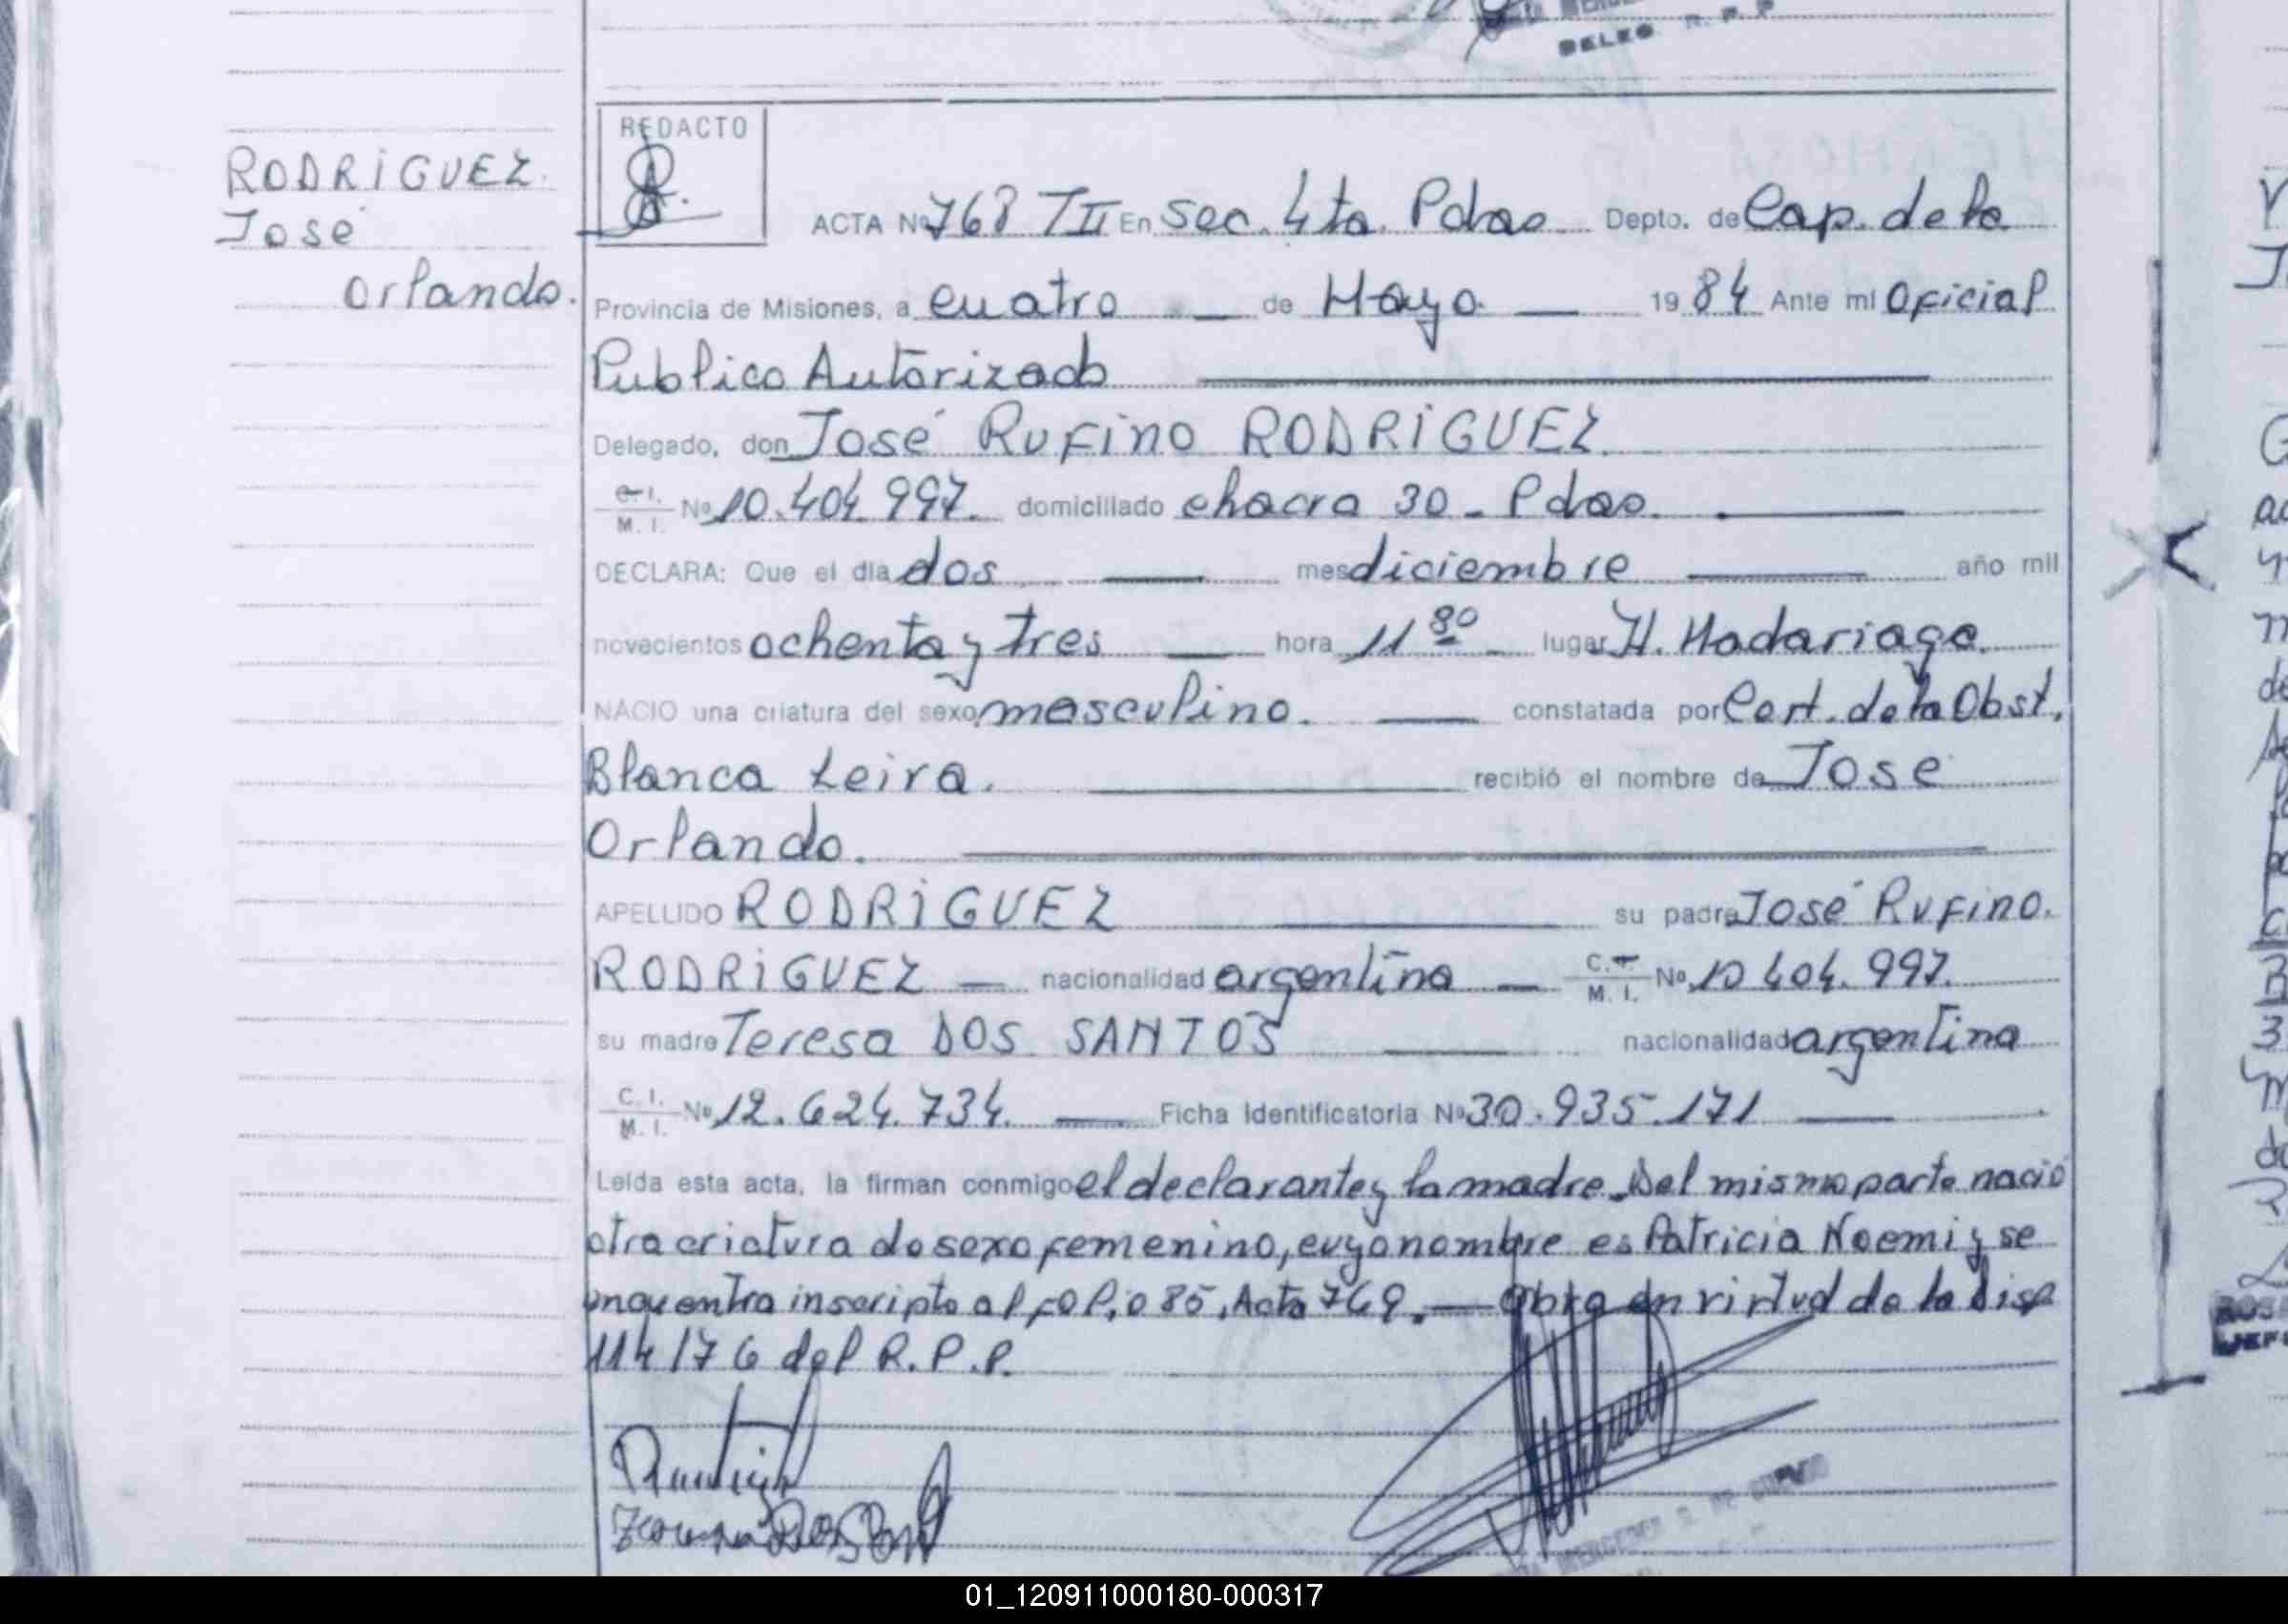 DELEG R. P. P
RODRIGUEZ.
José
Orlando.
REDACTO
ACTA Nº 768 TII En Sec. 4ta. Pdas Depto. de Cap. de la
Provincia de Misiones, a cuatro — de Mayo — 1984 Ante mí Oficial
Publico Autorizado
Delegado, don José Rufino RODRIGUEZ.
C. I. M. I. Nº 10.404.997. domiciliado chacra 30 - Pdas.
DECLARA: Que el día dos — mes diciembre — año mil
novecientos ochenta y tres — hora 11 30 lugar H. Madariaga.
NACIO una criatura del sexo masculino. — constatada por Cert. de la Obst.
Blanca Leira. — recibió el nombre de José
Orlando.
APELLIDO RODRIGUEZ — su padre José Rufino.
RODRIGUEZ — nacionalidad argentina — C. I. M. I. Nº 10 404.997.
su madre Teresa DOS SANTOS — nacionalidad argentina
C. I. M. I. Nº 12.624.734. — Ficha Identificatoria Nº 30.935.171 —
Leída esta acta, la firman conmigo el declarante y la madre. Del mismo parto nació
otra criatura de sexo femenino, cuyo nombre es Patricia Noemi y se
encuentra inscripto al fol. 085, Acta 769. — Obra en virtud de la Disp
114/76 del R.P.P.
01_120911000180-000317